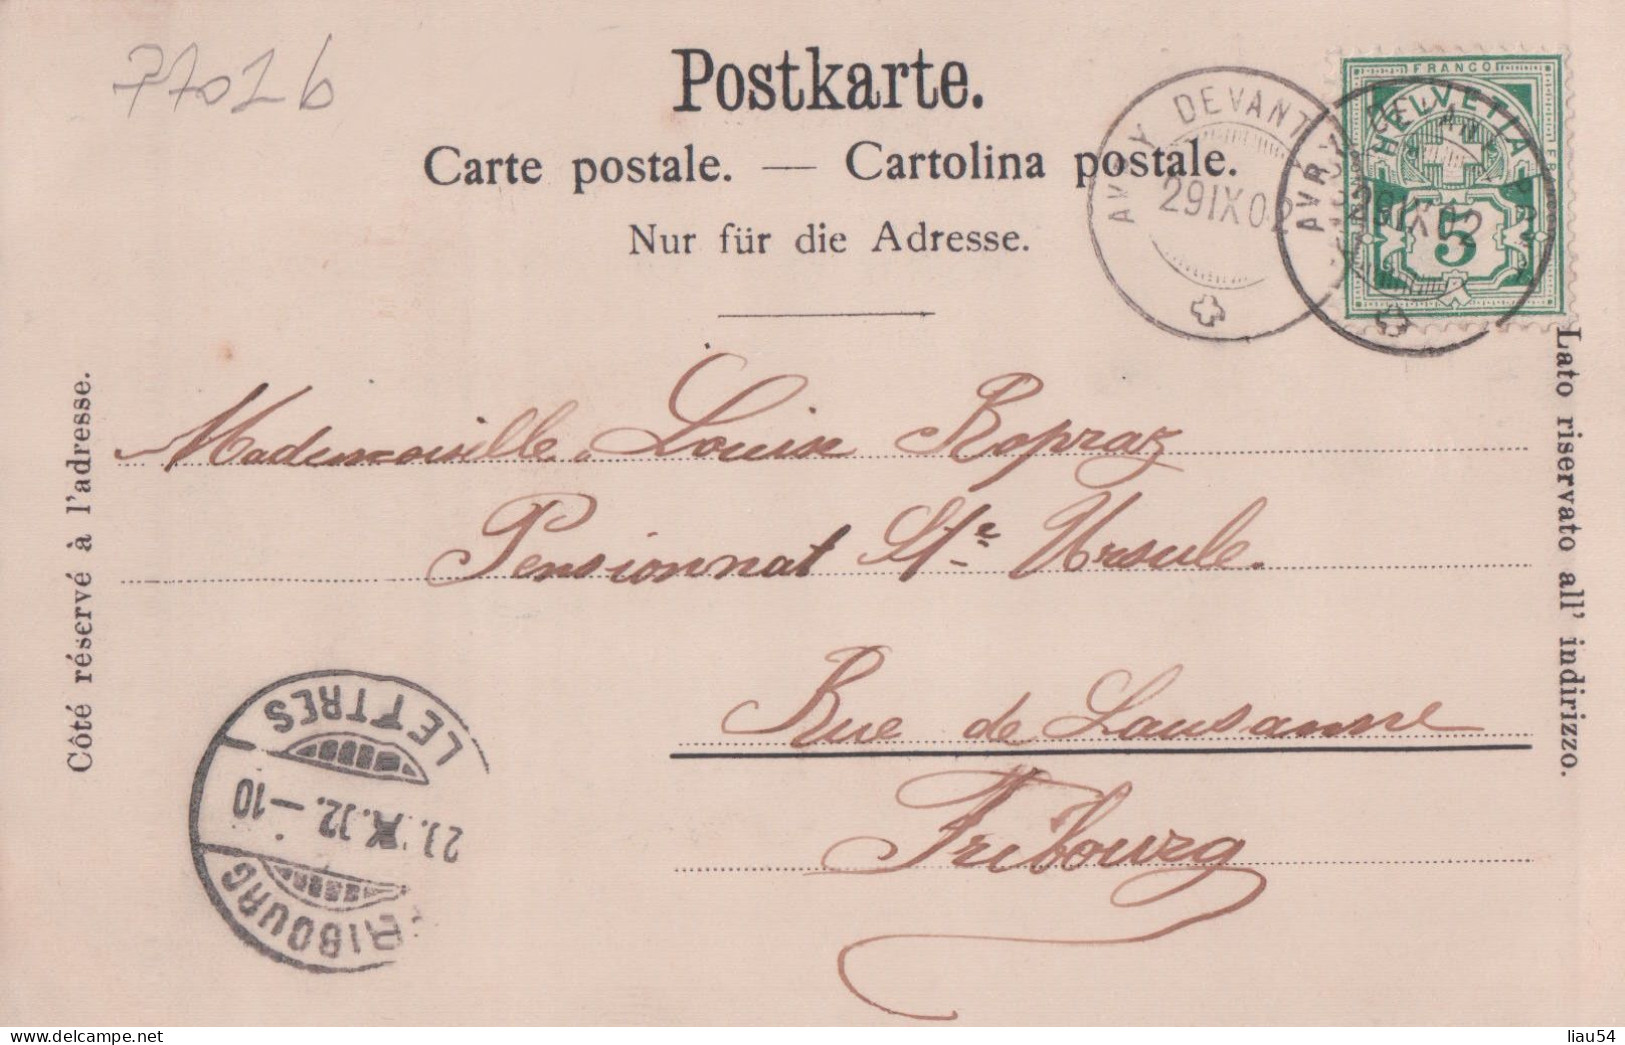 77026
Postkarte.
Carte postale. — Cartolina postale.
Nur für die Adresse.
AVRY DEVANT
29 IX 02
AVRY DEVANT P.
29 IX 02
FRANCO
HELVETIA
5
Côté réservé à l'adresse.
Lato riservato all' indirizzo.
Mademoiselle Louise Ropraz
Pensionnat Ste Ursule.
Rue de Lausanne
Fribourg
FRIBOURG
IX.02.–10
LETTRES
delcampe.net
liau54